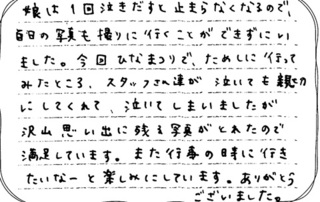 娘は1回泣きだすと止まらなくなるので、
百日の写真も撮りに行くことができずにい
ました。今回ひなまつりで、ためしに行って
みたところ、スタッフさん達が泣いても親切
にしてくれて、泣いてしまいましたが
沢山思い出に残る写真がとれたので
満足しています。また行事の時に行き
たいなーと楽しみにしています。ありがとう
ございました。